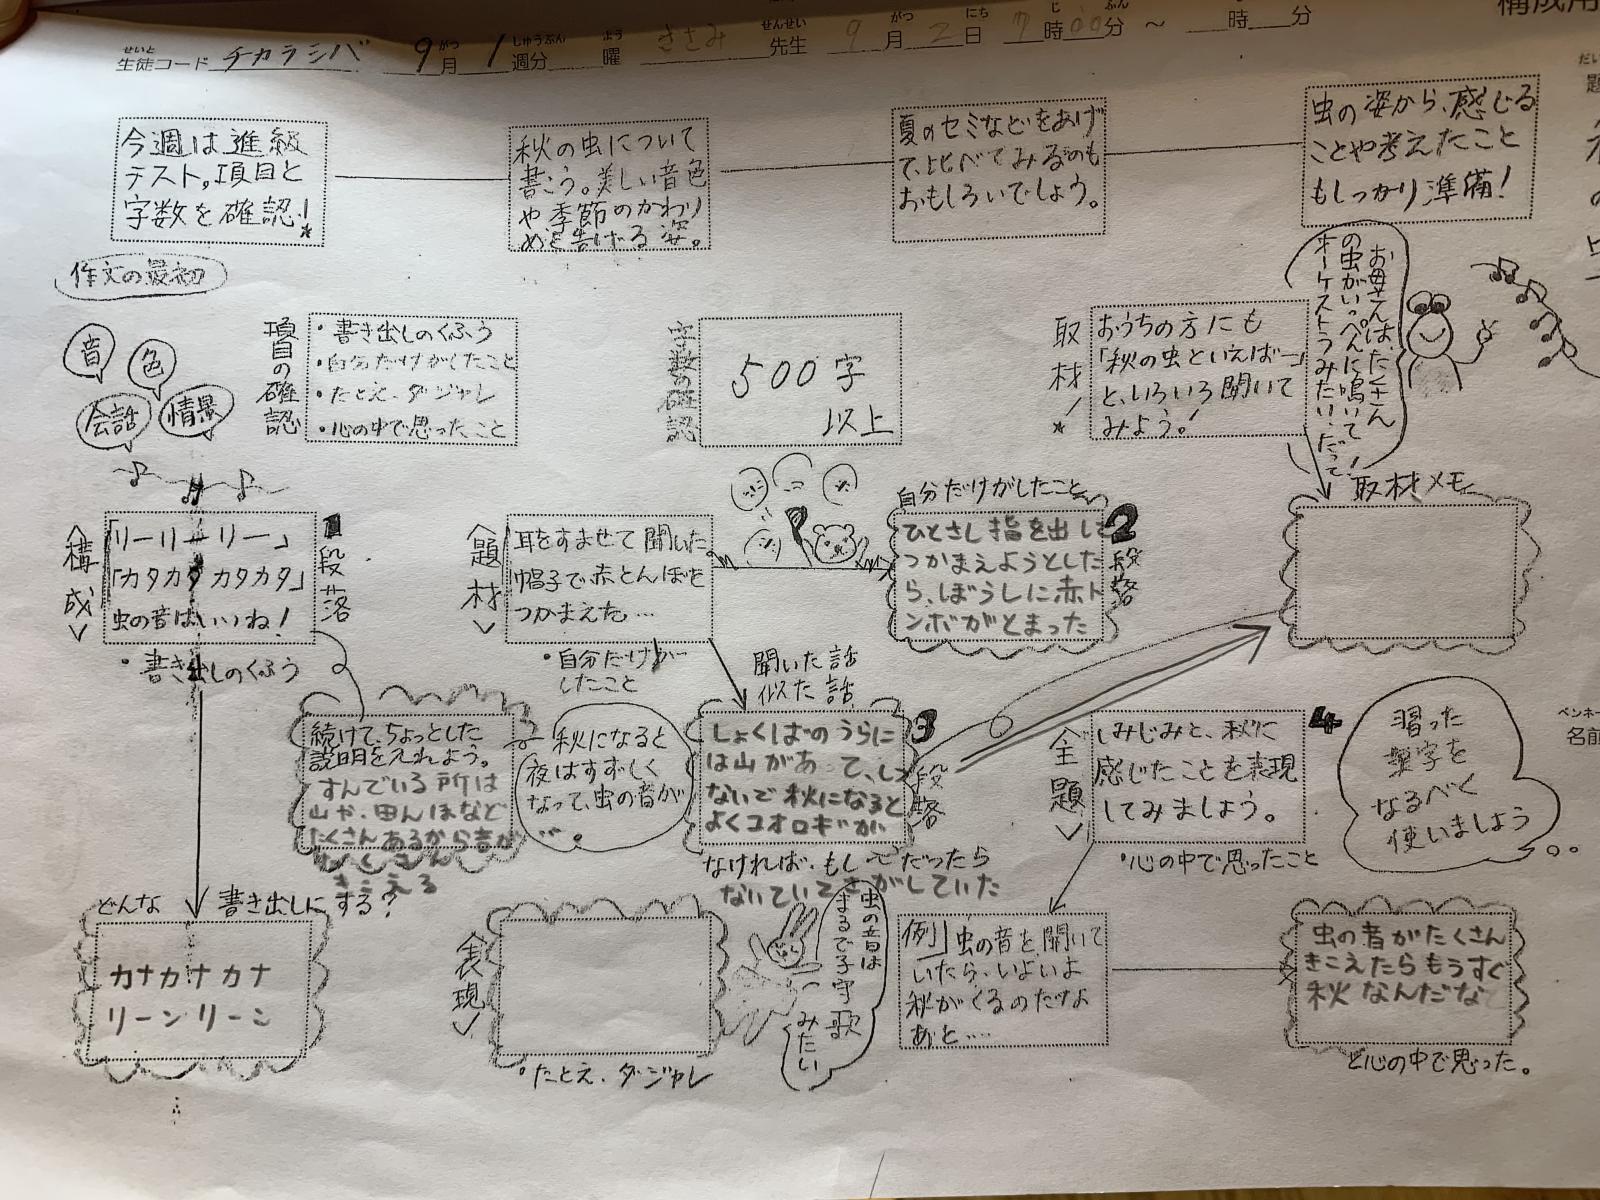 構成用
せいと
生徒コード チカラシバ 9月 1週分 曜 ささみ 先生 9月2日 7時00分 ～ 時 分
がつ しゅうぶん よう せんせい がつ にち じ ふん
今週は進級
テスト。項目と
字数を確認!
秋の虫について
書こう。美しい音色
や、季節のかわり
めを告げる姿。
夏のセミなどをあげ
て、比べてみるのも
おもしろいでしょう。
虫の姿から、感じる
ことや考えたこと
もしっかり準備!
作文の最初
音
色
会話
情景
項目の確認
・書き出しのくふう
・自分だけがしたこと
・たとえ、ダジャレ
・心の中で思ったこと
字数の確認
500字
以上
取材!
おうちの方にも
「秋の虫といえばー」
と、いろいろ聞いて
みよう!
お母さんは、たくさん
の虫がいっぺんに鳴いて、
オーケストラみたい、だって!
取材メモ
<構成>
「リーリーリー」
「カタカタ カタカタ」
虫の音はいいね!
・書き出しのくふう
1段落
<題材>
耳をすませて聞いた。
帽子で赤とんぼを
つかまえた…
・自分だけが
したこと
自分だけがしたこと
ひとさし指を出して
つかまえようとした
ら、ぼうしに赤ト
ンボがとまった
2段落
続けて、ちょっとした
説明を入れよう。
すんでいる所は
山や、田んぼなど
たくさんあるから音が
たくさん
きこえる
秋になると
夜はすずしく
なって、虫の音が
…。
聞いた話
似た話
しょくばのうらに
は山があって、しず
ないで秋になると
よくコオロギが
ないていてさがしていた
なければ、もし だったら
3段落
<主題>
しみじみと、秋に
感じたことを表現
してみましょう。
・心の中で思ったこと
4
習った
漢字を
なるべく
使いましょう
ペンネー
名前
どんな 書き出しにする?
カナカナカナ
リーンリーン
<表現>
・たとえ、ダジャレ
虫の音は
まるで子守歌
みたい
例」虫の音を聞いて
いたら、いよいよ
秋がくるのだなあ
あと……
虫の音がたくさん
きこえたらもうすぐ
秋なんだな
と心の中で思った。